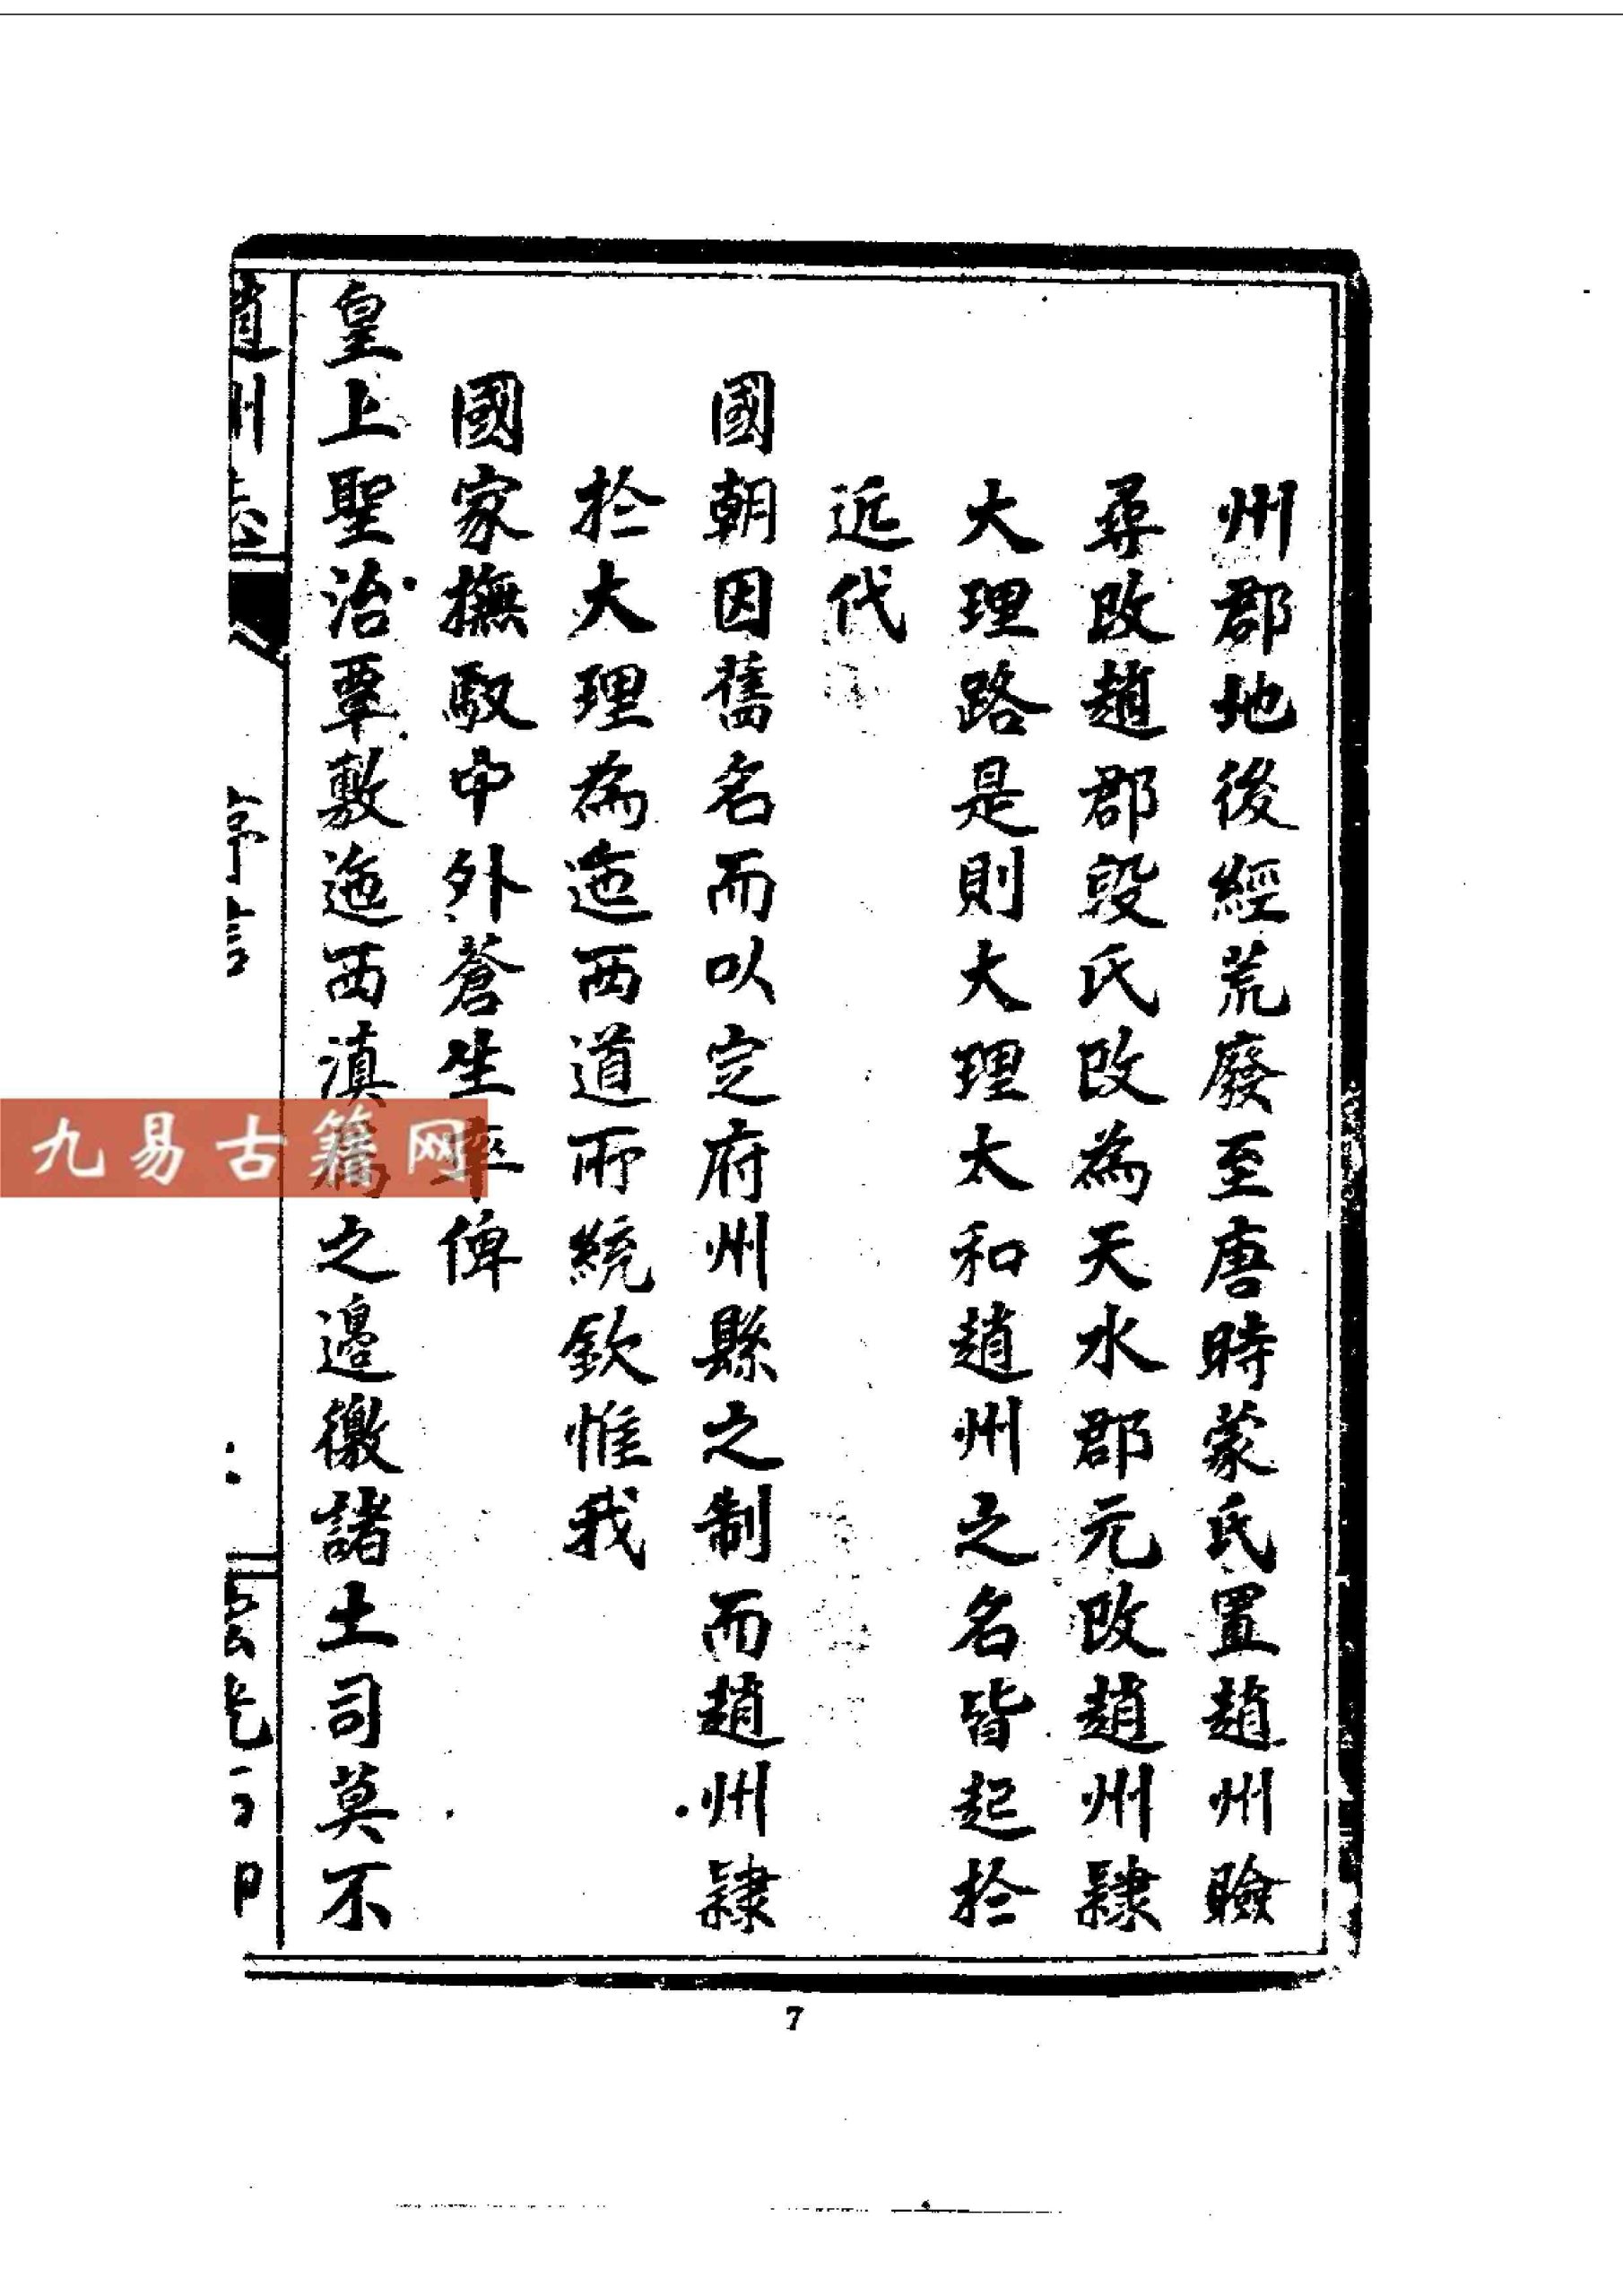 州郡地後經荒廢至唐時蒙氏置趙州瞼
尋改趙郡段氏改為天水郡元改趙州隷
大理路是則大理太和趙州之名皆起於
近代
國朝因舊名而以定府州縣之制而趙州隷
於大理為迤西道所統欽惟我
國家撫馭中外蒼生率俾
皇上聖治覃敷迤西滇之邊徼諸土司莫不
趙州志
九易古籍网
7